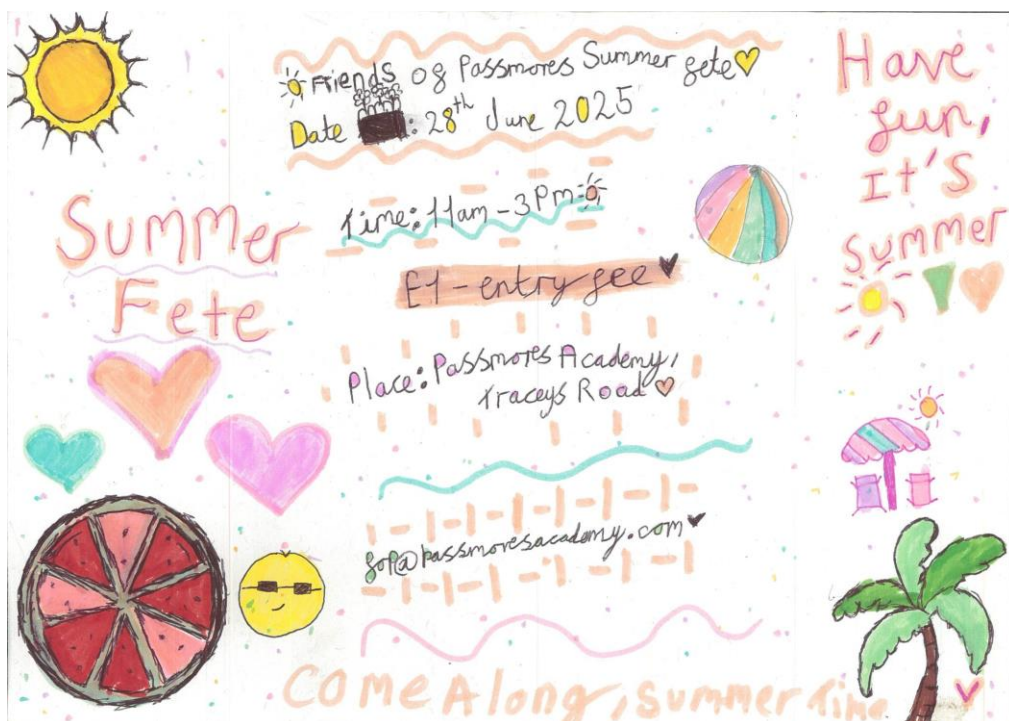 Summer
Fete
Friends of Passmores Summer fete
Date : 28th June 2025
Time: 11am - 3Pm
£1 - entry fee
Place: Passmores Academy,
Traceys Road
fop@passmoresacademy.com
Have
fun,
It's
Summer
Come Along, Summer Time